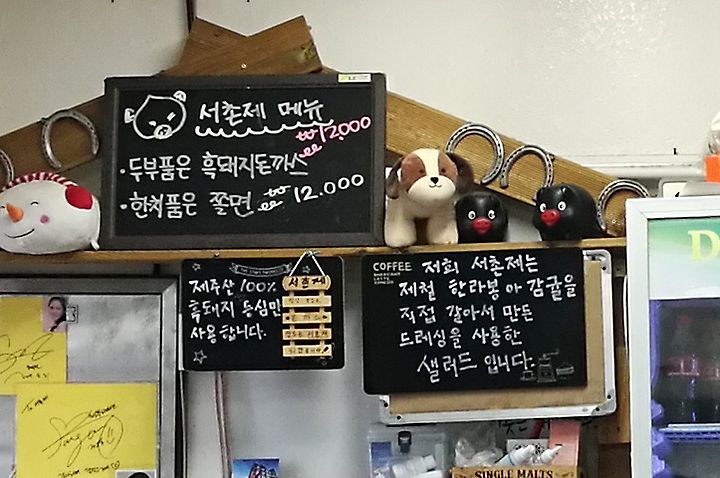 서촌제 메뉴
·두부품은 흑돼지돈까스 ₩12,000
·한치품은 쫄면 ₩12.000
제주산 100%
흑돼지 등심만
사용합니다.
서촌제
COFFEE
저희 서촌제는
제철 한라봉 아 감귤을
직접 갈아서 만든
드레싱을 사용한
샐러드 입니다.
SINGLE MALTS
D